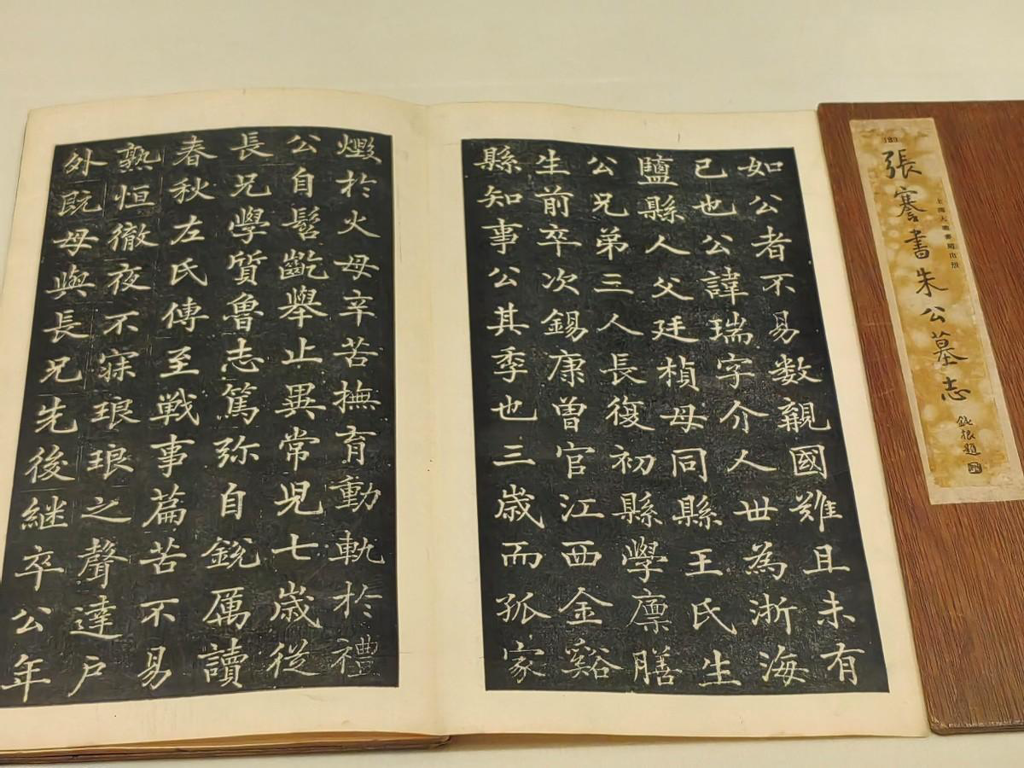 如公者不易數覯國難且未有
已也公諱瑞字介人世為浙海
鹽縣人父廷楨母同縣王氏生
公兄弟三人長復初縣學廩膳
生前卒次錫康曾官江西金谿
縣知事公其季也三歲而孤家
燬於火母辛苦撫育動軌於禮
公自髫齓舉止異常兒七歲從
長兄學質魯志篤弥自銳厲讀
春秋左氏傳至戰事篇苦不易
熟恒徹夜不寐琅琅之聲達戶
外既母與長兄先後継卒公年
張謇書朱公墓志
鈍根題